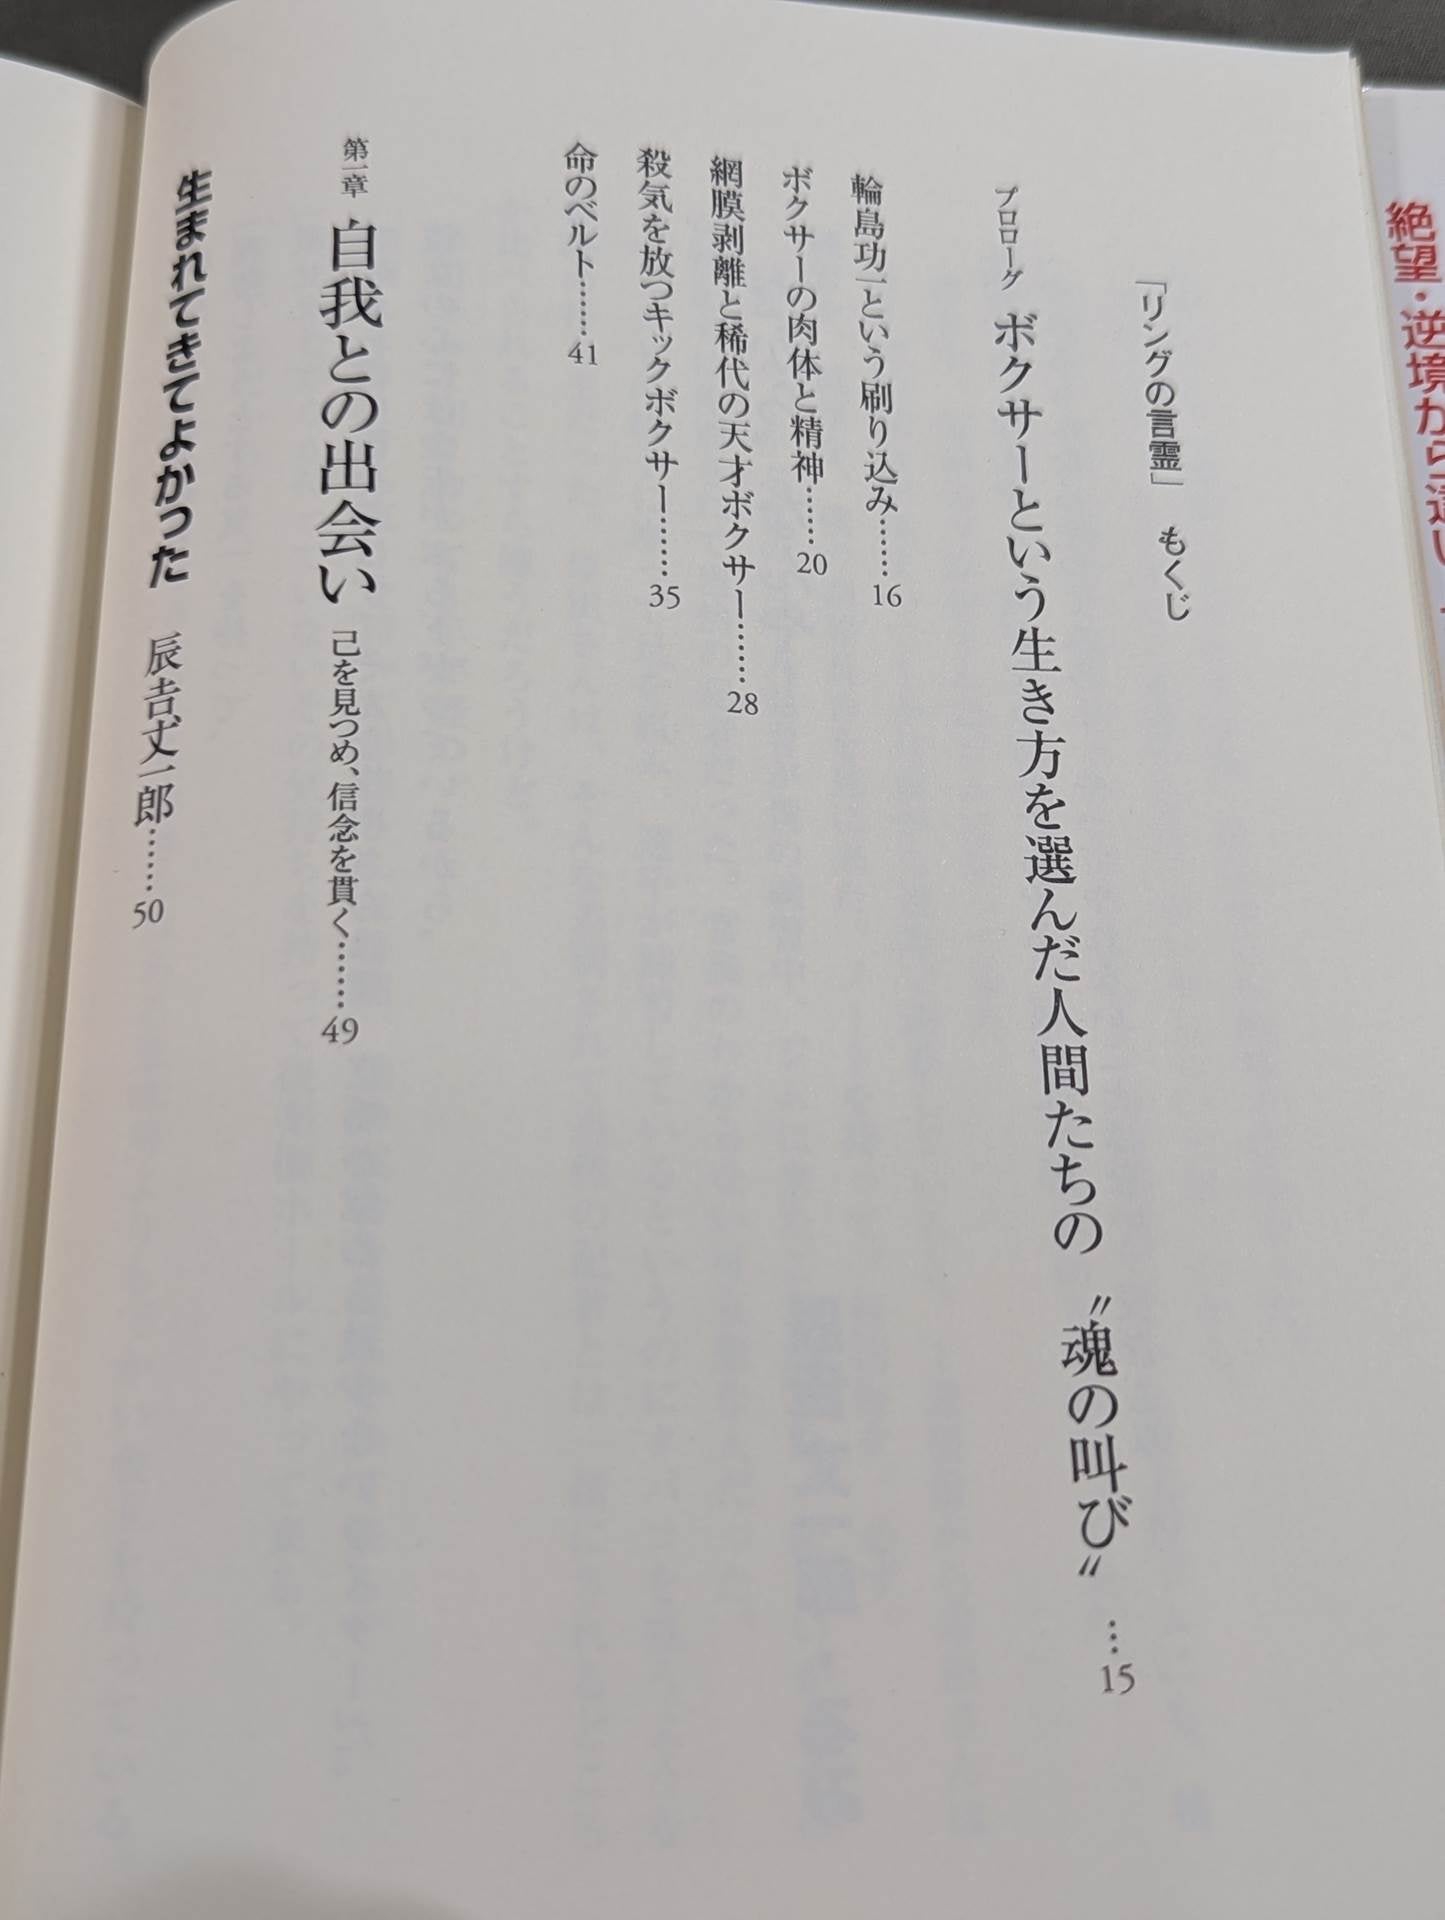 絶望・逆境から
「リングの言霊」 もくじ
プロローグ ボクサーという生き方を選んだ人間たちの 〝魂の叫び〟…15
輪島功一という刷り込み……16
ボクサーの肉体と精神……20
網膜剥離と稀代の天才ボクサー……28
殺気を放つキックボクサー……35
命のベルト……41
第一章 自我との出会い 己を見つめ、信念を貫く……49
生まれてきてよかった 辰𠮷丈一郎……50